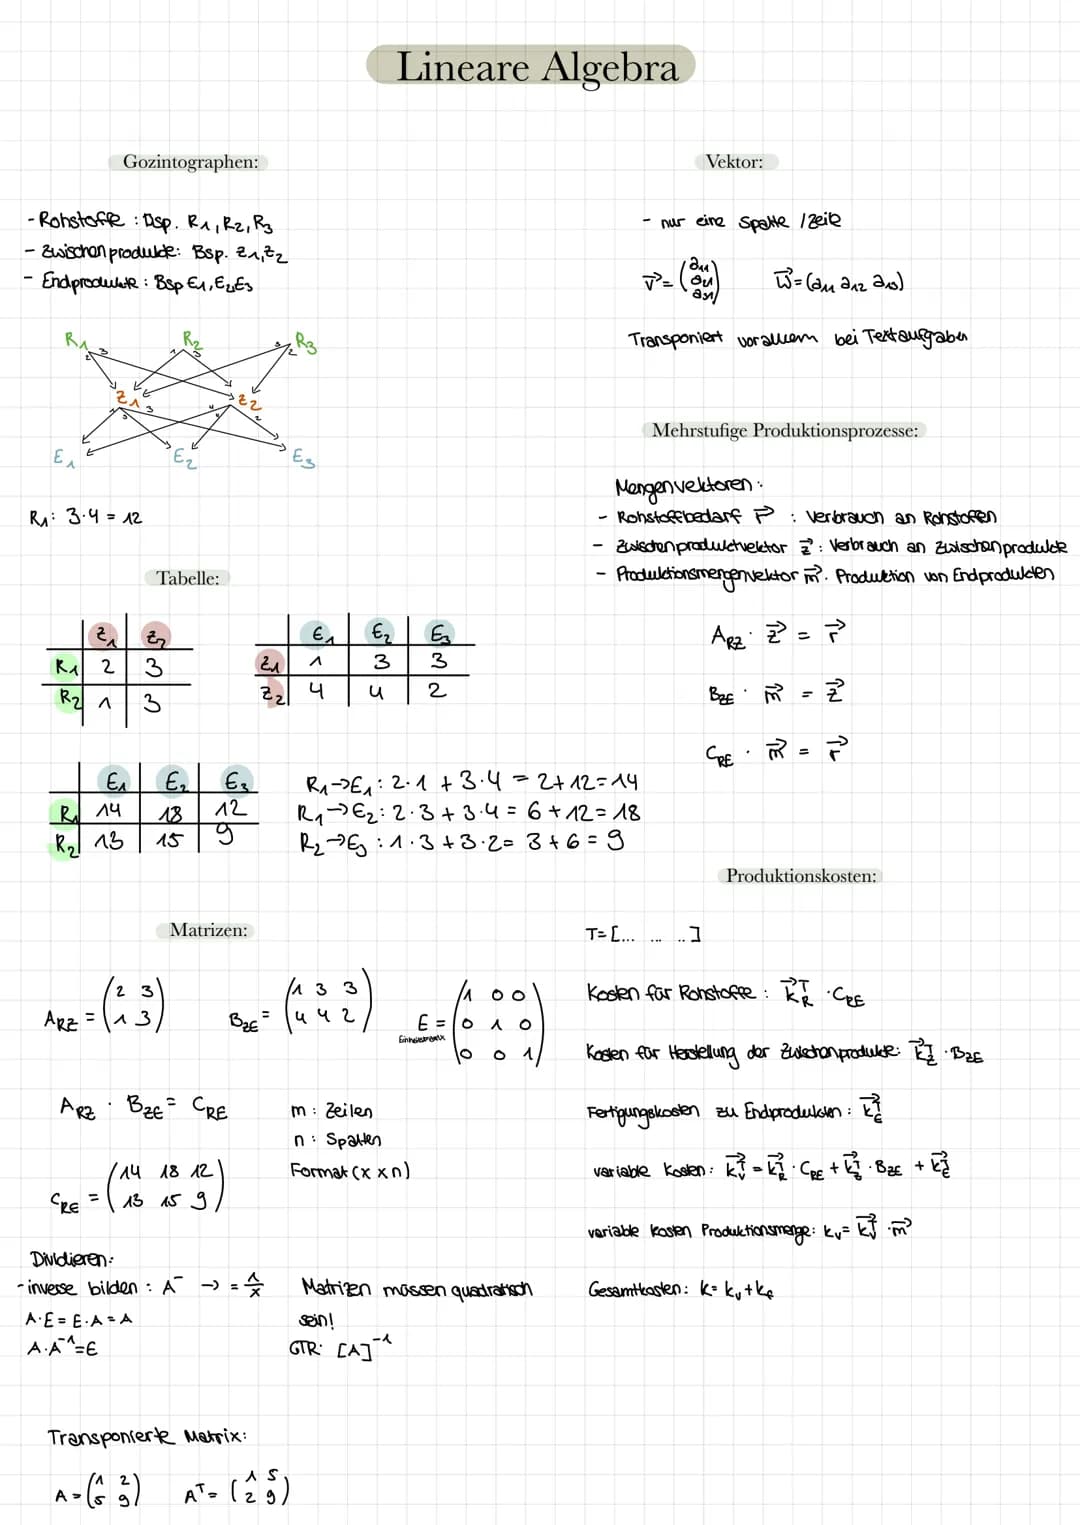 Lineare Algebra
Gozintographen:
- Rohstoffe : Bsp. R1, R2, R3
- Zwischenprodukte: Bsp. Z1, Z2
- Endprodukte : Bsp E1, E2, E3
R1 R2 R3
2 3 1 3 3 2
Z1 Z2
1 3 3 4 4 2
E1 E2 E3
R1: 3·4 = 12
Tabelle:
Z1 Z2
R1 2 3
R2 1 3
E1 E2 E3
Z1 1 3 3
Z2 4 4 2
E1 E2 E3
R1 14 18 12
R2 13 15 9
R1→E1: 2·1 + 3·4 = 2+12=14
R1→E2: 2·3 + 3·4 = 6+12=18
R2→E3 : 1·3 + 3·2 = 3+6 = 9
Matrizen:
ARZ = (2 3
1 3)
BZE = (1 3 3
4 4 2)
E = (1 0 0
0 1 0
0 0 1)
Einheitsmatrix
ARZ · BZE = CRE
m : Zeilen
n : Spalten
Format (x x n)
CRE = (14 18 12
13 15 9)
Dividieren:
- inverse bilden : A⁻ → = 1/x
A·E = E·A = A
A·A⁻¹=E
Matrizen müssen quadratisch
sein!
GTR: [A]⁻¹
Transponierte Matrix:
A = (1 2
5 9)
Aᵀ = (1 5
2 9)
Vektor:
- nur eine Spalte / Zeile
v⃗ = (a11
a21
a31)
w⃗ = (a11 a12 a13)
Transponiert vorallem bei Textaufgaben
Mehrstufige Produktionsprozesse:
Mengenvektoren :
- Rohstoffbedarf r⃗ : Verbrauch an Rohstoffen
- Zwischenproduktvektor z⃗ : Verbrauch an Zwischenprodukte
- Produktionsmengenvektor m⃗. Produktion von Endprodukten
ARZ · z⃗ = r⃗
BZE · m⃗ = z⃗
CRE · m⃗ = r⃗
Produktionskosten:
T= [... ... ..]
Kosten für Rohstoffe : k⃗ᵀR · CRE
Kosten für Herstellung der Zwischenprodukte: k⃗ᵀZ · BZE
Fertigungskosten zu Endprodukten : k⃗ᵀE
variable Kosten: k⃗ᵀv = k⃗ᵀR · CRE + k⃗ᵀZ · BZE + k⃗ᵀE
variable kosten Produktionsmenge: kv = k⃗ᵀv · m⃗
Gesamtkosten: k = kv + kf